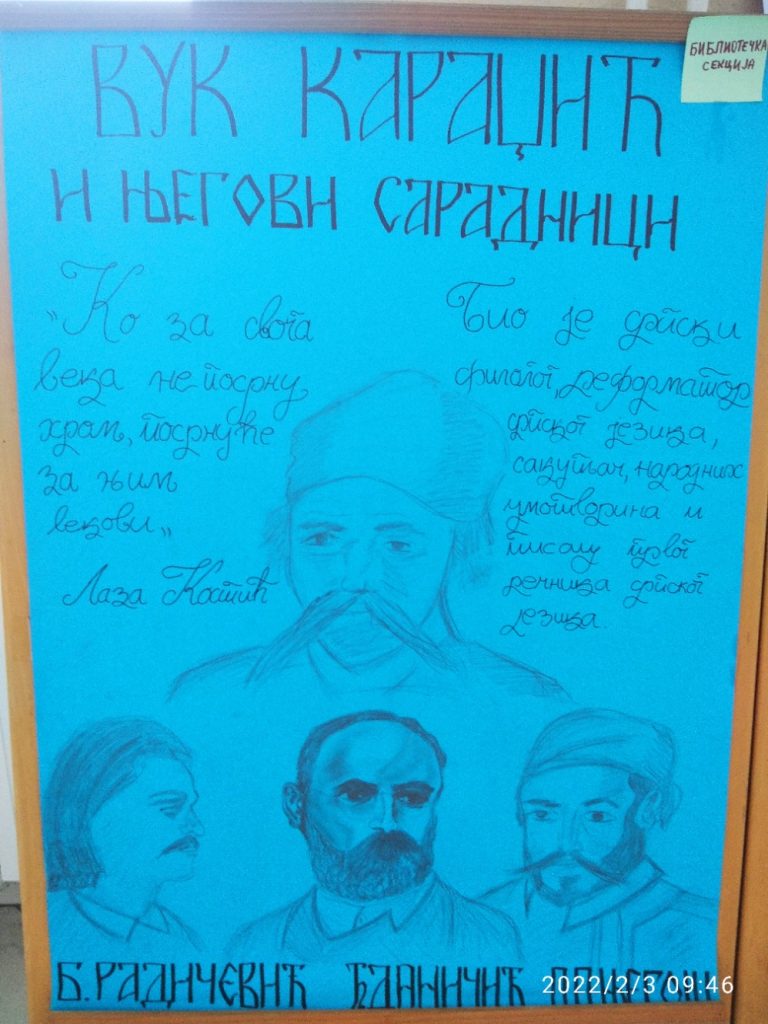 ВУК КАРАЏИЋ
И ЊЕГОВИ САРАДНИЦИ
БИБЛИОТЕЧКА
СЕКЦИЈА
„Ко за свога
века не посрну
хром, посрнуће
за њим
векови„
Лаза Костић
Био је српски
филолог, реформатор
српског језика,
сакупљач, народних
умотворина и
писац првог
речника српског
језика.
Б. РАДИЧЕВИЋ Ђ.ДАНИЧИЋ
2022/2/3 09:46